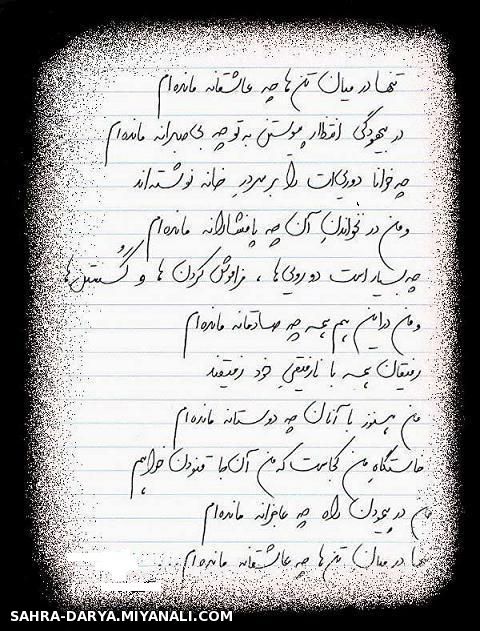 تنها در میان تن ها چه عاشقانه مانده ام
در بیهودگی انتظار پیوستن به تو چه بی صبرانه مانده ام
چه خوانا دوری ات را بر سردر خانه نوشته اند
و من در نخواندن آن چه پافشارانه مانده ام
چه بسیار است دورویی ها ، فراموش کردن ها و گسستن ها
و من در این همهمه چه صادقانه مانده ام
رفیقان همه با نارفیقیِ خود رفیقند
من هنوز با آنان چه دوستانه مانده ام
خاستگاهِ من کجاست که من آن جا غنودن خواهم
من در پیمودن راه چه عاجزانه مانده ام
تنها در میان تن ها چه عاشقانه مانده ام....
SAHRA-DARYA.MIYANALI.COM